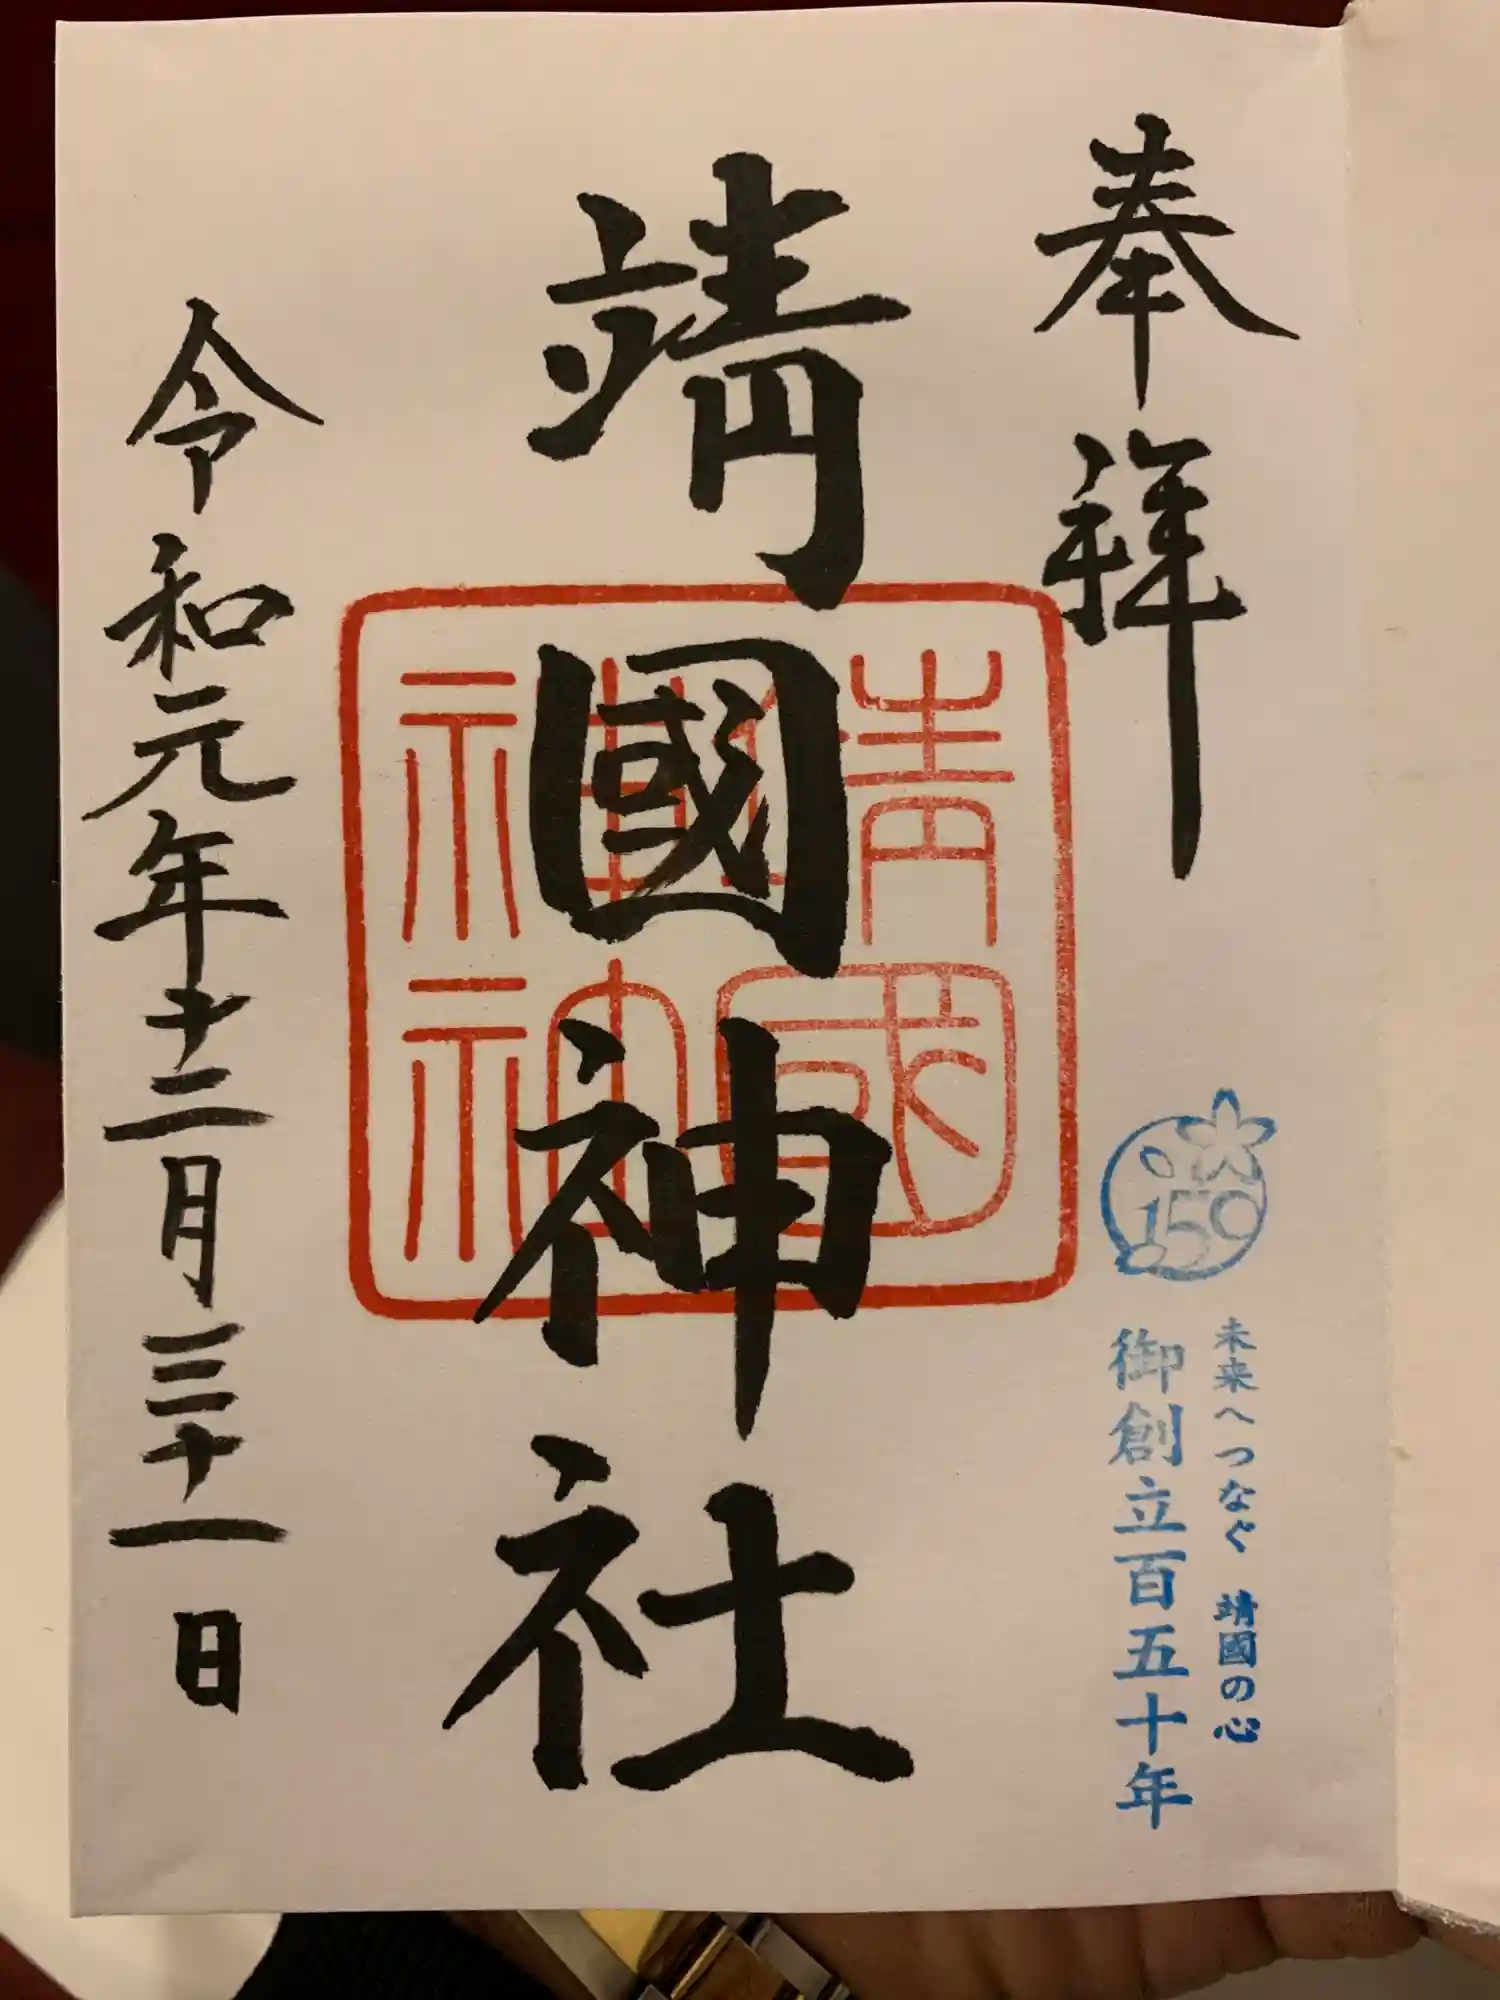 奉拝
150
未来へつなぐ 靖國の心
御創立百五十年
靖國神社
靖國
神社
令和元年十二月三十一日